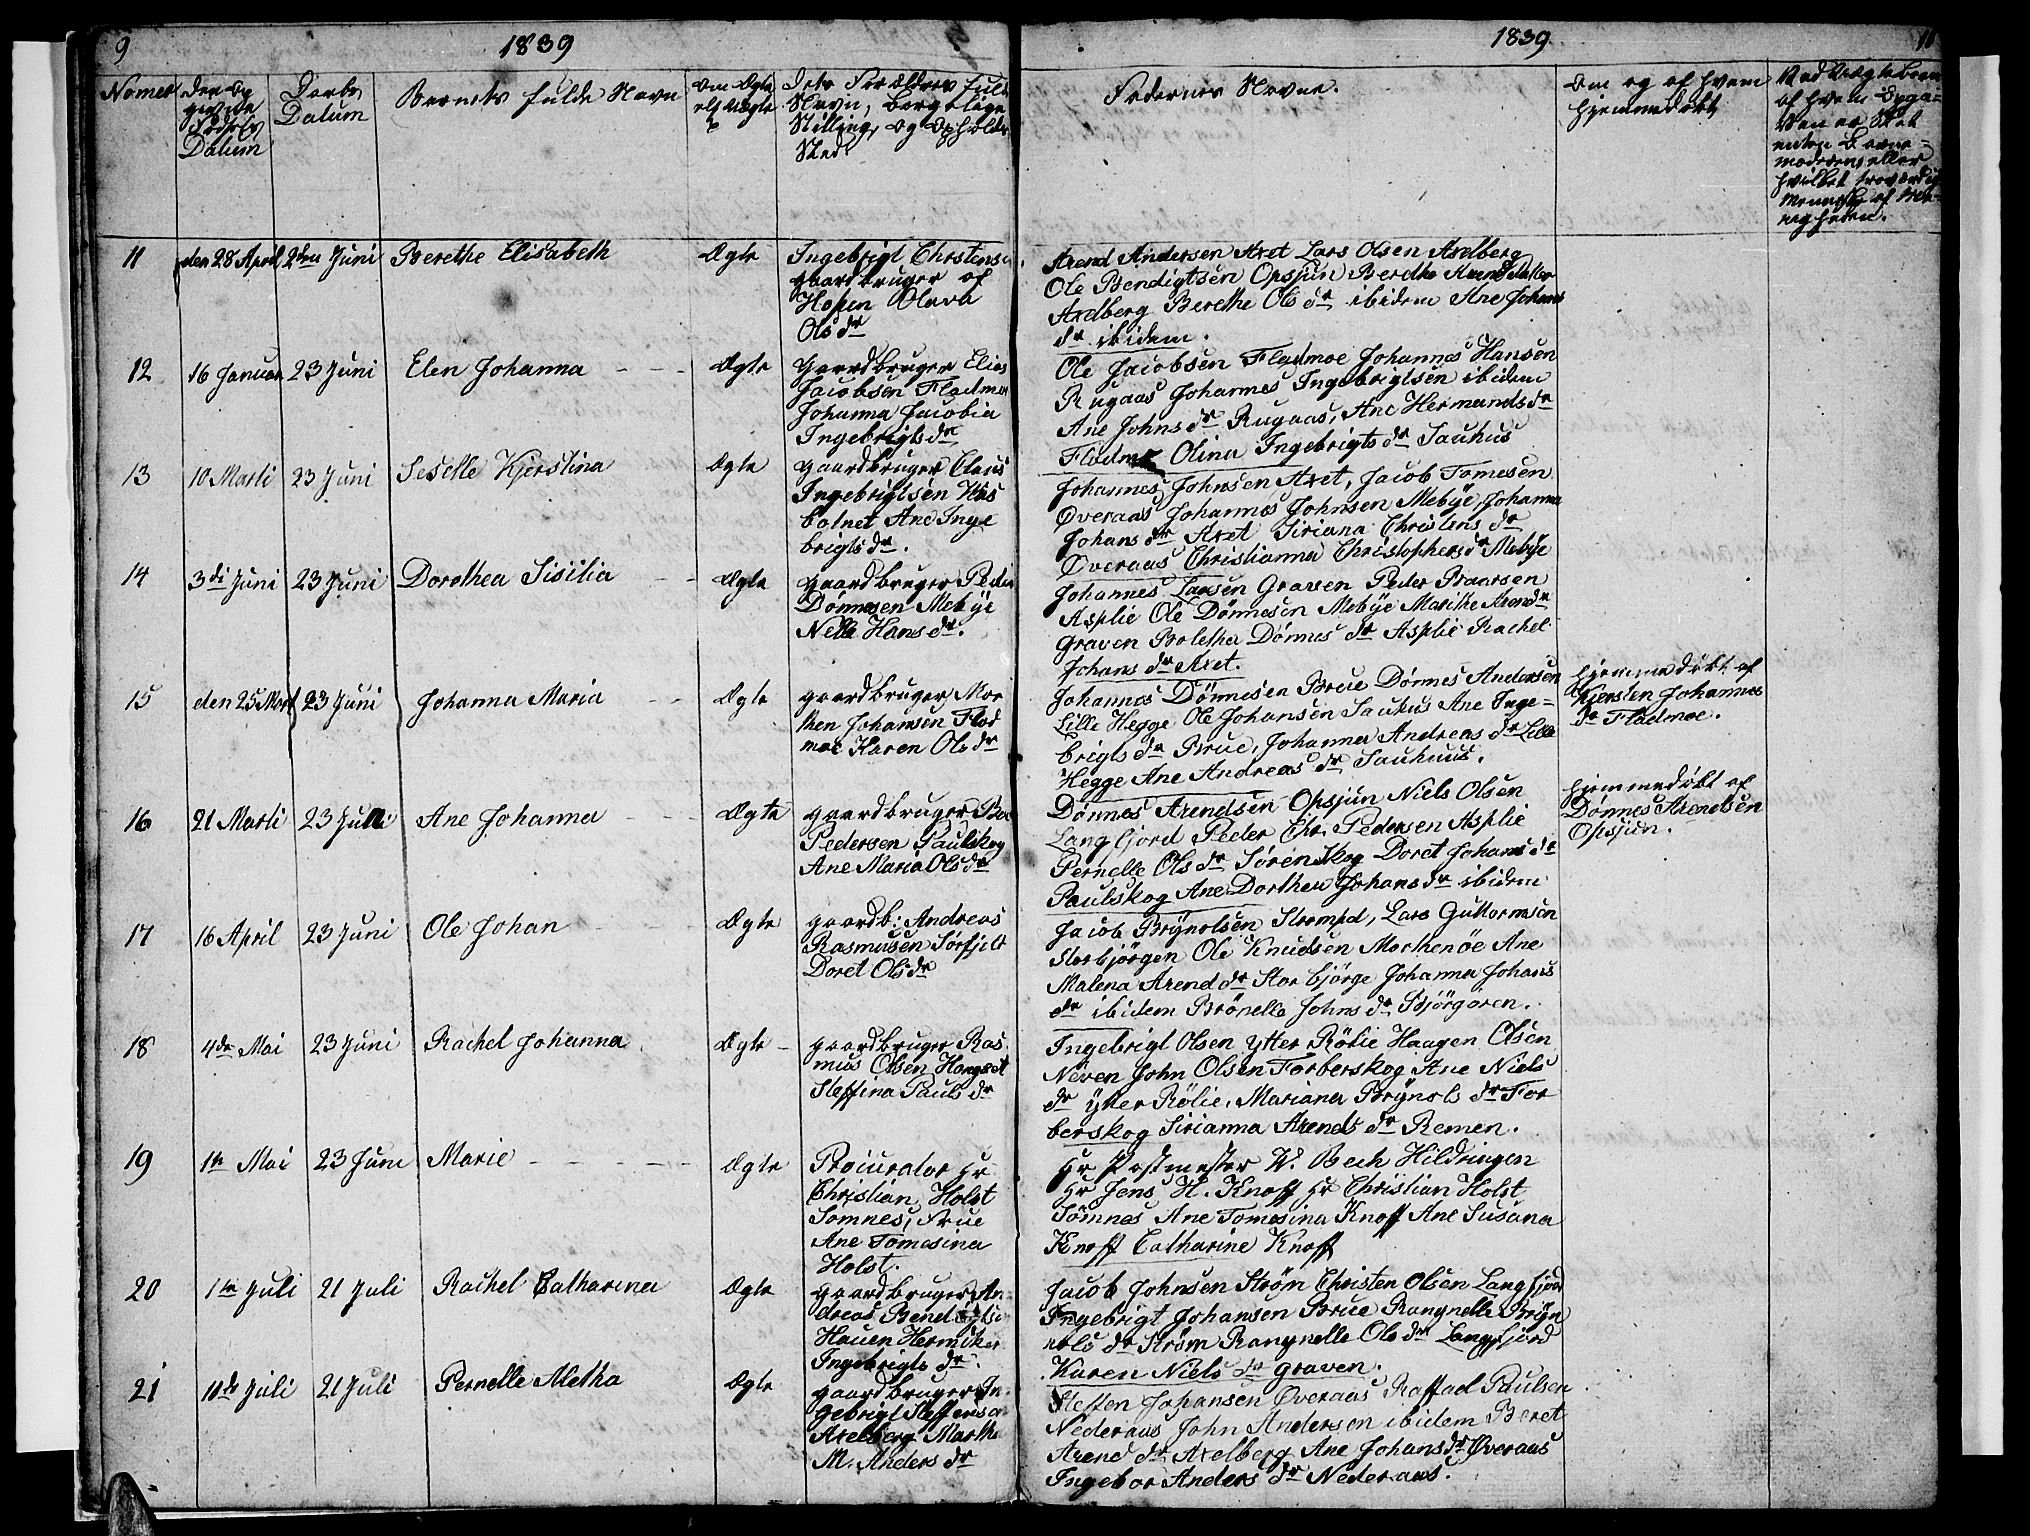 9
1839
1839
Nomer
Daabs
Datum
Barnets fulde Navn
Om Ægte
Navn, borgerlige
Stilling, og Opholds
Sted
Datum
Faddernes Navne.
Om og af hvem
hjemmedøbt
11
den 28 April
2den Juni
Berethe Elisabeth
Ægte
Ingebrigt Christens
gaardbruger af
Olava
Ols dr
Arend Andersen Axet Lars Olsen Axelberg
Ole Bendigtsen Opsjun Arends datter
Axelberg Berethe Ols dr ibidem Ane Johans
dr ibidem.
12
16 Januar
23 Juni
Elen Johanna
Ægte
gaardbruger Elias
Jacobsen Fladmoe
Johanna Jacobia
Ingebrigts dr
Ole Jacobsen Fladmoe Johannes Hansen
Rugaas Johannes Ingebrigtsen ibidem
Ane Johns dr Rugaas, Ane Hermands dr
Fladmoe Olina Ingebrigts dr Sauhus
13
10 Marti
23 Juni
Seselle Kjerstina
Ægte
gaardbruger Claus
Ingebrigtsen Hus
botnet Ane Inge
brigts dr.
Johannes Johnsen Axet, Jacob Tomesen
Øveraas Johannes Johnsen Mebÿe, Johanna
Johans dr Axet Siriana Christens dr
Øveraas Christianna Christophers dr Mebÿe
14
3di Juni
23 Juni
Dorothea Sisilia
Ægte
gaardbruger Peder
Dønnesen Mebÿe
Nille Hans dr.
Johannes Larsen Graven Peder Baarsen
Asplie Ole Dønnesen Mebÿe Marithe Arends dr
Graven Boletha Dønnes dr Asplie Rachel
Johans dr Axet.
15
den 25 Mart
23 Juni
Johanna Maria
Ægte
gaardbruger Mor
then Johansen Flad
moe Karen Ols dr
Johannes Dønnesen Brue Dønnes Andersen
Lille Hegge Ole Johansen Sauhus Ane Inge=
brigts dr Brue, Johanna Andreas dr Lille
Hegge Ane Andreas dr Sauhuus.
hjemmedøbt af
Kjersten Johannes
dr Fladmoe.
16
21 Marti
23 Juni
Ane Johanna
Ægte
gaardbruger
Pedersen Paulskog
Ane Maria Ols dr
Dønnes Arendsen Opsjun Niels Olsen
Langfjord Peder Chr. Pedersen Asplie
Pernelle Ols dr Sørenskog Doret Johans dr
Paulskog Ane Dorthea Johans dr ibidem
hjemmedøbt af
Dønnes Arendsen
Opsjun.
17
16 April
23 Juni
Ole Johan
Ægte
gaardb: Andreas
Rasmusen Sørfjelt
Doret Ols dr
Jacob Brÿnolsen Strømpd, Lars Guttormsen
Storbjörgen Ole Knudsen Mathenöe Ane
Malena Arend dr Storbjörge Johanna Johans
dr ibidem Brönelle Johns dr Bjørgaren.
18
4de Mai
23 Juni
Rachel Johanna
Ægte
gaardbruger Ras
mus Olsen Hongset
Steffina Pauls dr
Ingebrigt Olsen Ytter Rølie Haagen Olsen
Neven John Olsen Forberskog Ane Niels
dr Ytter Rølie, Mariana Brÿnols dr For
berskog Sirianna Arends dr Remen.
19
1te Mai
23 Juni
Marie
Ægte
Procurator Hr
Christian Holst
Somnes, Frue
Ane Tomesina
Holst.
Hr Postmester W. Bech Hildringen
Hr Jens H. Knoff Hr Christian Holst
Sömnes Ane Tomesina Knoff Ane Susana
Knoff Catharine Knoff
20
1te Juli
21 Juli
Rachel Catharina
Ægte
gaardbruger An=
dreas Bendigts
Hauen
Ingebrigts dr.
Jacob Johnsen Strøm Christen Olsen Langfjord
Ingebrigt Johansen Brue Rangnelle Brÿn
nols dr Strøm Rangnelle Ols dr Langfjord
Karen Niels dr Graven.
21
10de Juli
21 Juli
Pernelle Metha
Ægte
gaardbruger In=
gebrigt Steffensen
Axelberg Marthe
M. Anders dr
Steffen Johansen Øveraas Raffael Paulsen
Nederaas John Andersen ibidem Beret
Arend dr Axelberg Ane Johans dr Øveraas
Ingebor Anders dr Nederaas.